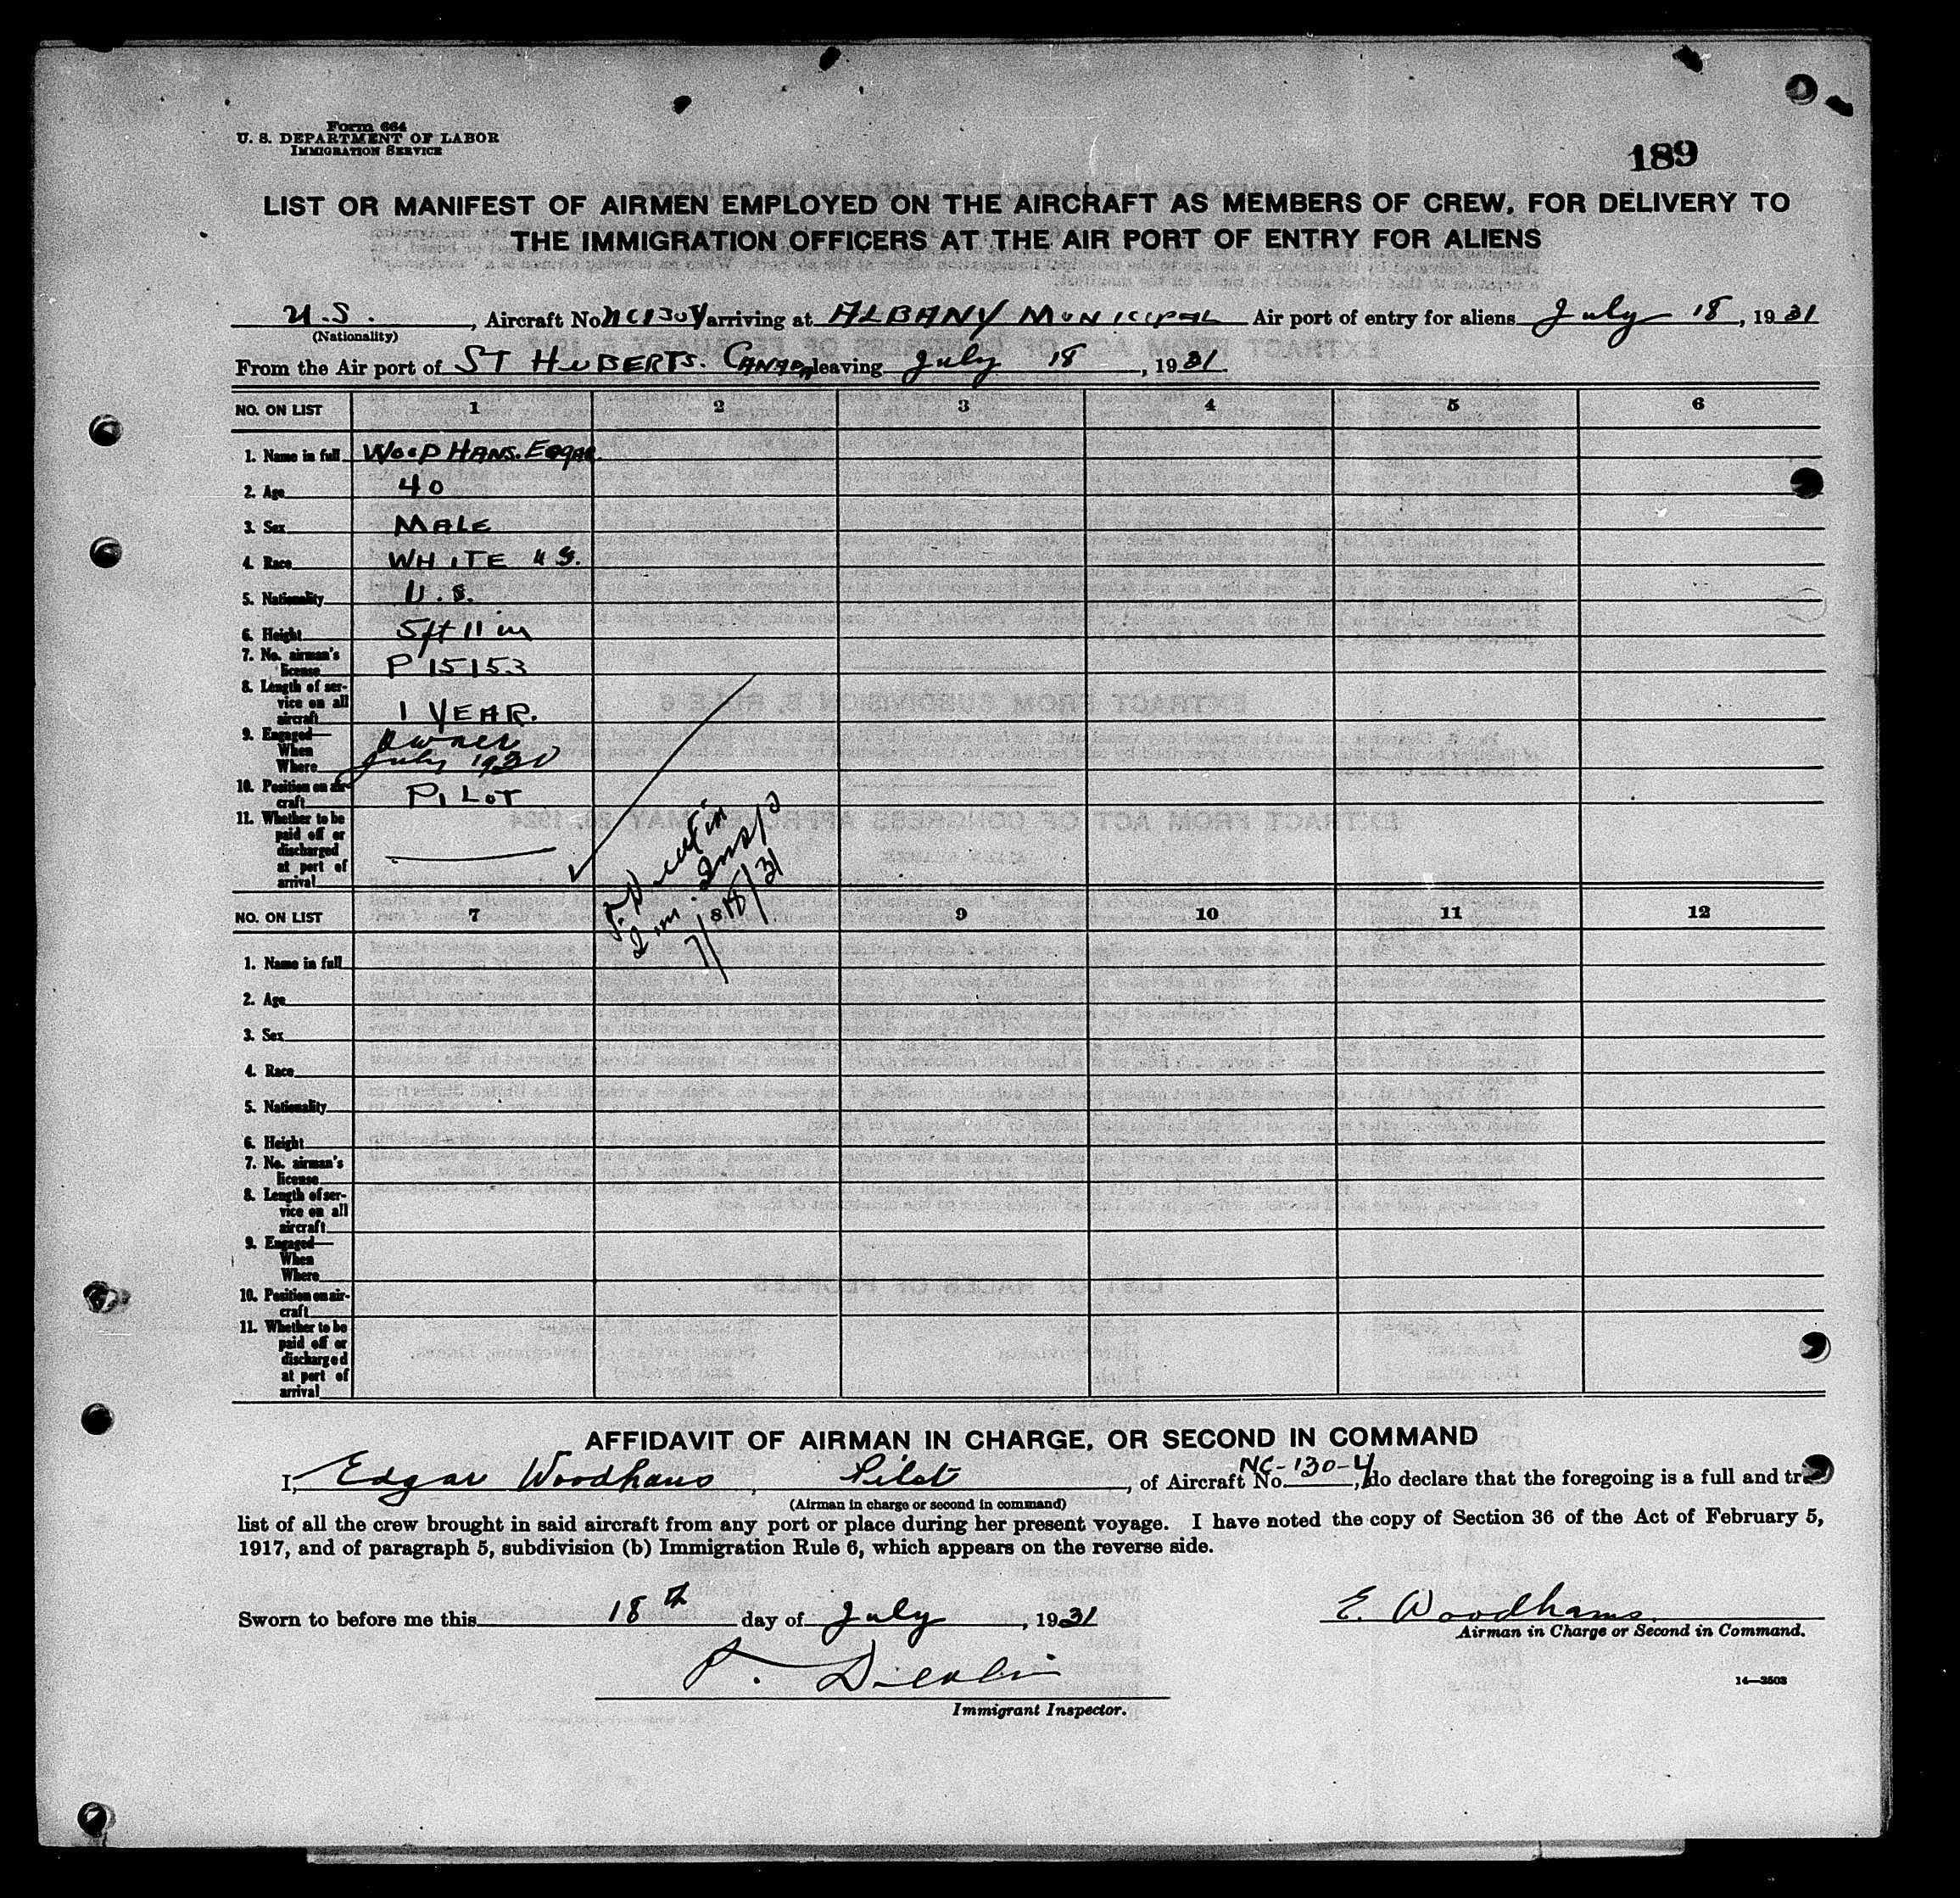 Form 664
U. S. DEPARTMENT OF LABOR
IMMIGRATION SERVICE
189
LIST OR MANIFEST OF AIRMEN EMPLOYED ON THE AIRCRAFT AS MEMBERS OF CREW, FOR DELIVERY TO
THE IMMIGRATION OFFICERS AT THE AIR PORT OF ENTRY FOR ALIENS
U.S. , Aircraft No. NC130Y arriving at ALBANY MUNICIPAL Air port of entry for aliens July 18, 1931
(Nationality)
From the Air port of ST HUBERTS. CANADA, leaving July 18, 1931.
NO. ON LIST 1 2 3 4 5 6
1. Name in full WOODHAMS. EDGAR
2. Age 40
3. Sex MALE
4. Race WHITE U S.
5. Nationality U.S.
6. Height 5ft 11 in
7. No. airman's
license P 15153
8. Length of ser-
vice on all
aircraft 1 YEAR.
9. Engaged— Owner
When
Where July 1930
10. Position on air-
craft PILOT
11. Whether to be
paid off or
discharged
at port of
arrival
Imm. Insp
7/18/31
NO. ON LIST 7 8 9 10 11 12
1. Name in full
2. Age
3. Sex
4. Race
5. Nationality
6. Height
7. No. airman's
license
8. Length of ser-
vice on all
aircraft
9. Engaged—
When
Where
10. Position on air-
craft
11. Whether to be
paid off or
discharged
at port of
arrival
AFFIDAVIT OF AIRMAN IN CHARGE, OR SECOND IN COMMAND
I, Edgar Woodhams, Pilot, of Aircraft No. NC-130-Y, do declare that the foregoing is a full and tr
(Airman in charge or second in command)
list of all the crew brought in said aircraft from any port or place during her present voyage. I have noted the copy of Section 36 of the Act of February 5,
1917, and of paragraph 5, subdivision (b) Immigration Rule 6, which appears on the reverse side.
Sworn to before me this 18th day of July, 1931
E. Woodhams.
Airman in Charge or Second in Command.
Immigrant Inspector.
14—2503